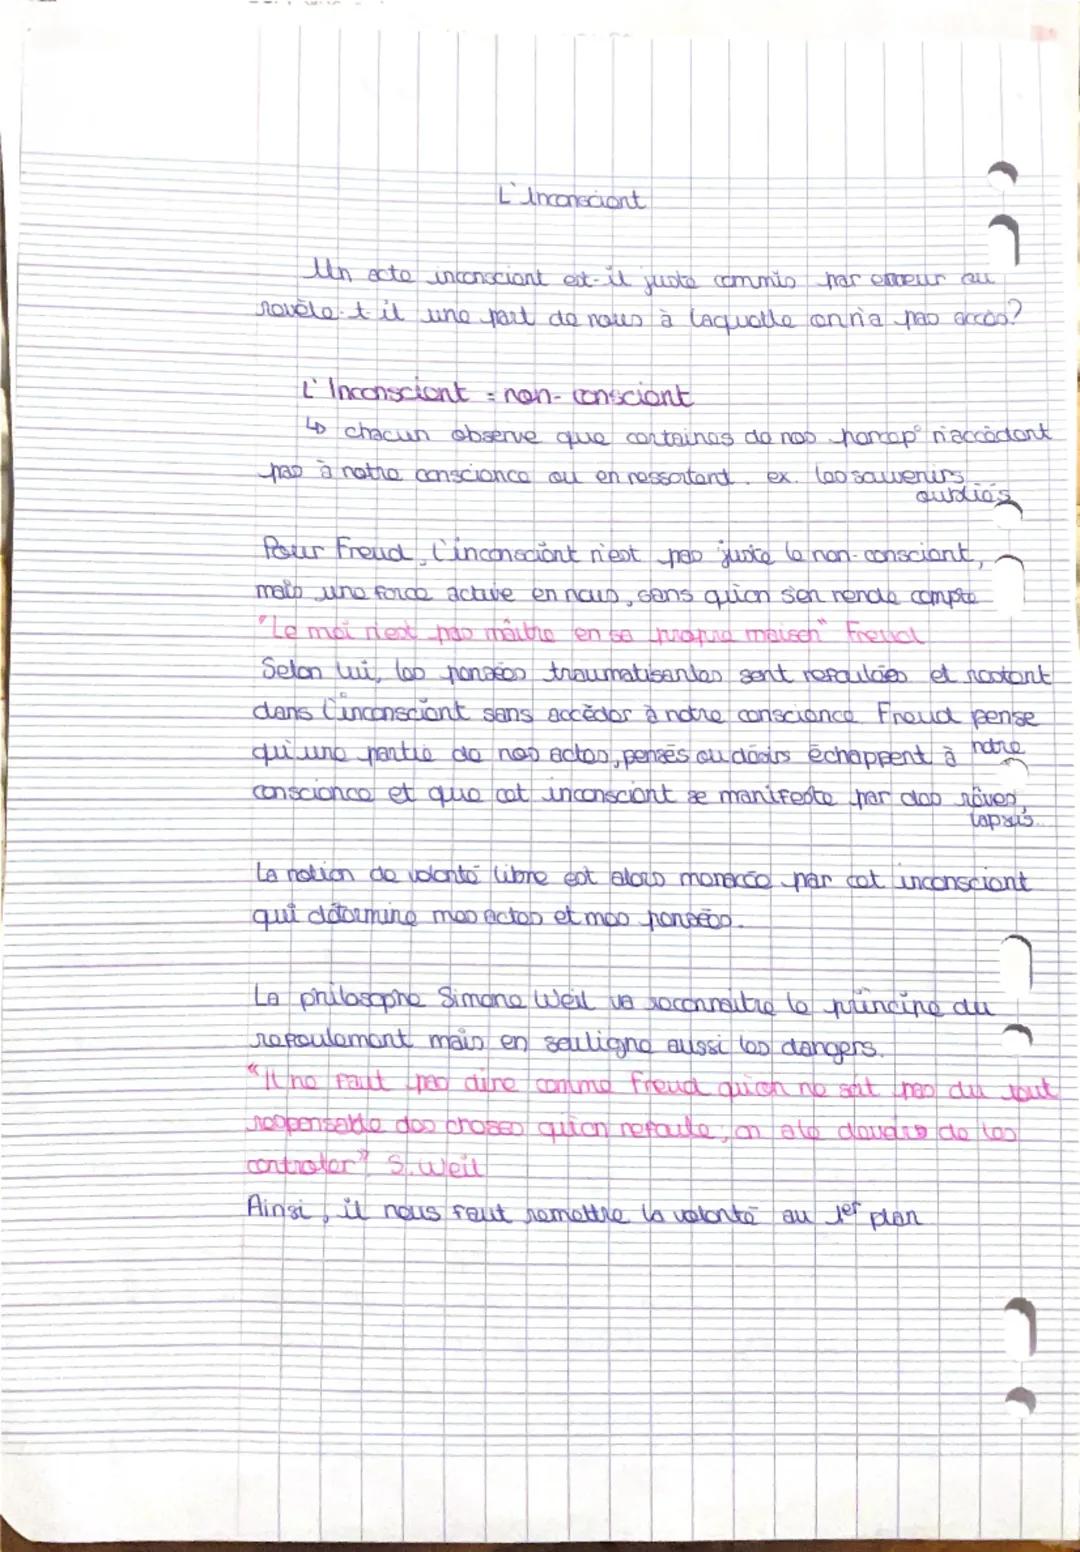 L'Inconscient
Un acte inconscient est-il juste commis par erreur ou
révèle-t-il une part de nous à laquelle on n'a pas accès?
L'Inconscient = non-conscient
↳ chacun observe que certaines de nos percep° n'accèdent
pas à notre conscience ou en ressortent. ex. les souvenirs
oubliés
Pour Freud, l'inconscient n'est pas juste le non-conscient,
mais une force active en nous, sans qu'on s'en rende compte
"Le moi n'est pas maître en sa propre maison" Freud
Selon lui, les pensées traumatisantes sont refoulées et restent
dans l'inconscient sans accéder à notre conscience. Freud pense
qu'une partie de nos actes, pensés ou désirs échappent à notre
conscience et que cet inconscient se manifeste par des rêves,
lapsus...
La notion de volonté libre est alors menacée par cet inconscient
qui détermine mes actes et mes pensées.
La philosophe Simone Weil va reconnaître le principe du
refoulement mais en souligne aussi les dangers.
"Il ne faut pas dire comme Freud qu'on ne soit pas du tout
responsable des choses qu'on refoule, on a le devoir de les
contrôler" S. Weil
Ainsi, il nous faut remettre la volonté au 1er plan